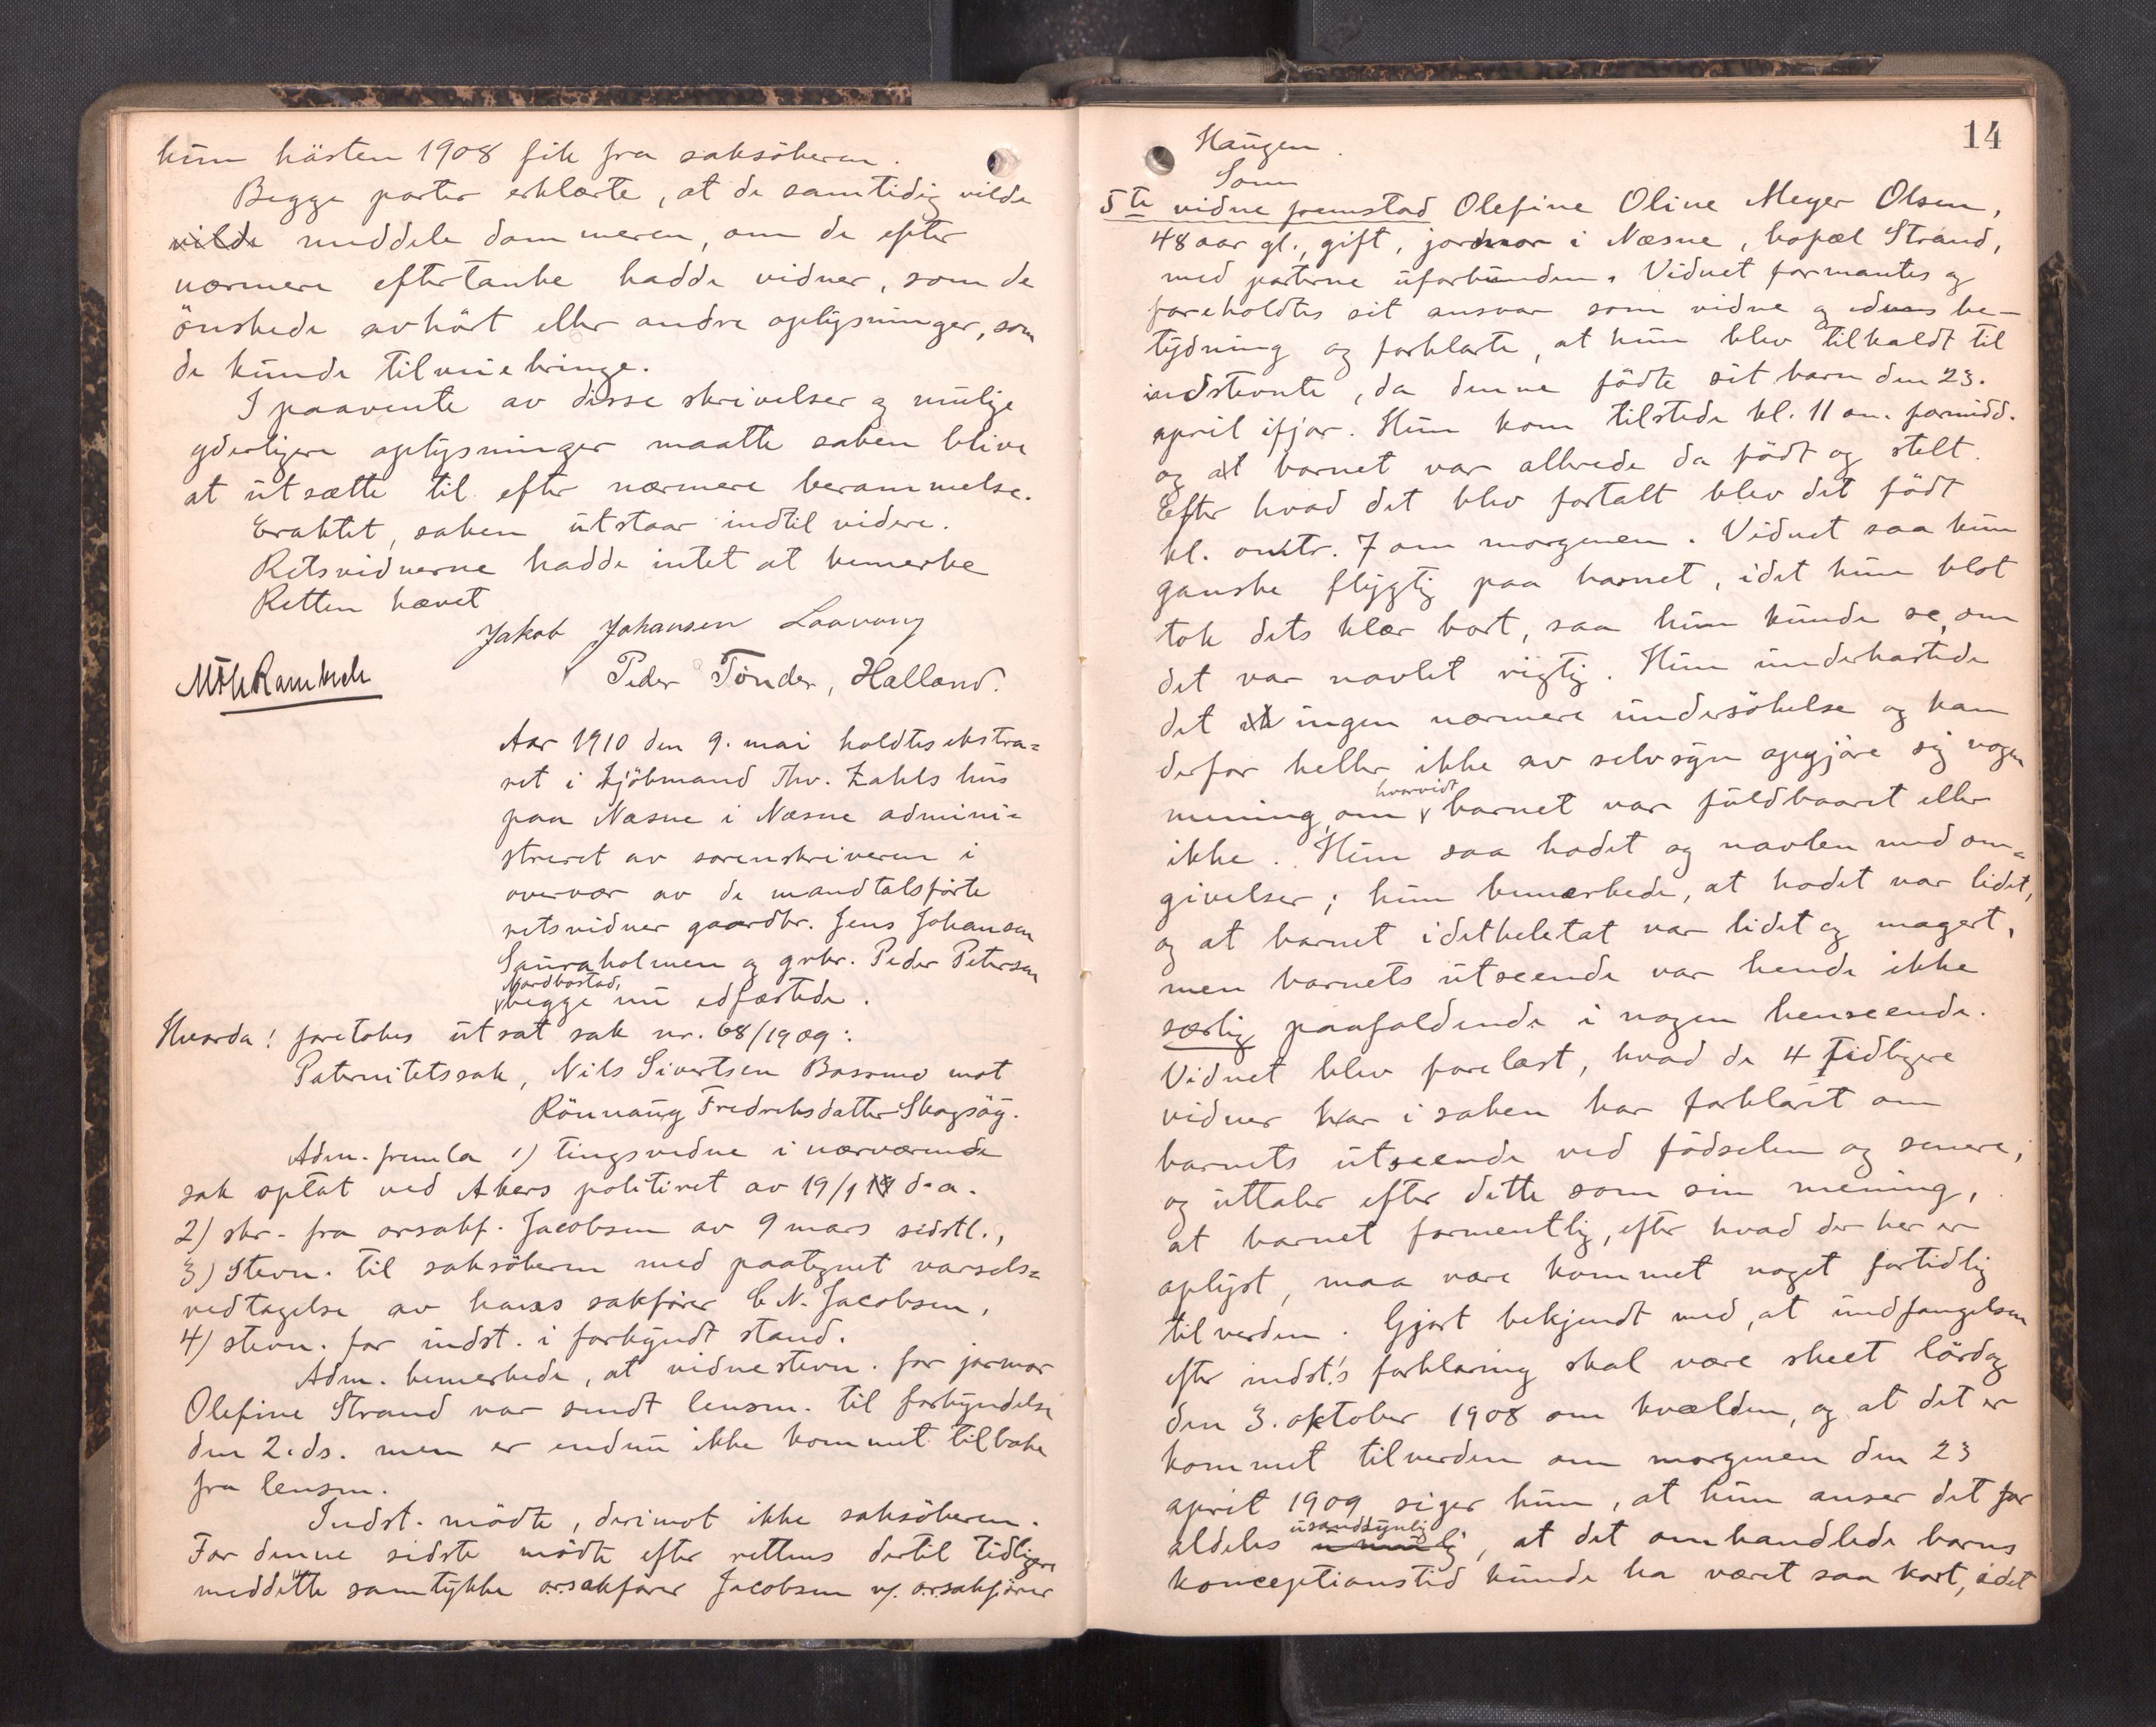 hun hösten 1908 fik fra saksökeren.
Begge parter erklærte, at de samtidig vilde
vilde meddele dommeren, om de efter
nærmere eftertanke hadde vidner, som de
önskede avhört eller andre oplysninger, som
de kunde tilveiebringe.
I paavente av disse skrivelser og mulige
yderligere oplysninger maatte saken blive
at utsætte til efter nærmere berammelse.
Eraktet, saken utstaar indtil videre.
Retsvidnerne hadde intet at bemerke
Retten hævet
Jakob Johansen Laavong
Peder Tönder, Halland.
Aar 1910 den 9. mai holdtes ekstra=
ret i kjöbmand Thv. Zahls hus
paa Næsne i Næsne admini=
streret av sorenskriveren i
overvær av de mandtalsförte
retsvidner gaardbr. Jens Johansen
Sauraholmen og grbr. Peder Petersen
Nordbostad,
begge nu edfæstede.
Hvorda! foretokes utsat sak nr. 68/1909:
Paternitetssak, Nils Sivertsen Bossmo mot
Rönnaug Fredriksdatter Skogsög.
Adm. fremla 1) tingsvidne i nærværende
sak optat ved Akers politiret av 19/1 d.a.
2) skr. fra orsakf. Jacobsen av 9 mars sidstl.,
3) Stevn. til saksökeren med paategnet varsels=
vedtagelse av hans sakförer C. N. Jacobsen,
4) stevn. for indst. i forkyndt stand.
Adm. bemerkede, at vidnestevn. for jormor
Olefine Strand var sendt lensm. til forkyndelse
den 2. ds. men er endnu ikke kommet tilbake
fra lensm.
Indst. mödte, derimot ikke saksökeren.
For denne sidste mödte efter rettens dertil tidligere
meddelte samtykke orsakförer Jacobsen v/ orsakförer
14
Haugen.
Som
5te vidne fremstod Olefine Oline Meyer Olsen,
48 aar gl., gift, jordmor i Næsne, bopæl Strand,
med parterne uforbunden. Vidnet formantes og
foreholdtes sit ansvar som vidne og edens be-
tydning og forklarte, at hun blev tilkaldt til
indstevnte, da denne födte sit barn den 23.
april ifjor. Hun kom tilstede kl. 11 om. formidd.
og at barnet var allerede da födt og stelt.
Efter hvad det blev fortalt blev det födt
kl. omtr. 7 om morgenen. Vidnet saa kun
ganske flygtig paa barnet, idet hun blot
tok dets klær bort, saa hun kunde se, om
det var navlet rigtig. Hun underkastede
det ingen nærmere undersökelse og kan
derfor heller ikke av selvsyn opgjöre sig nogen
hvorvidt
mening om barnet var fuldbaaret eller
ikke. Hun saa hodet og navlen med om=
givelser; hun bemærkede, at hodet var lidet,
og at barnet idetheletat var lidet og magert,
men barnets utseende var hende ikke
særlig paafaldende i nogen henseende.
Vidnet blev forelæst, hvad de 4 tidligere
vidner har i saken har forklart om
barnets utseende ved födselen og senere,
og uttaler efter dette som sin mening,
at barnet formentlig, efter hvad der her er
oplyst, maa være kommet noget fortidlig
til verden. Gjort bekjendt med, at undfangelsen
efter indst.'s forklaring skal være skeet lördag
den 3. oktober 1908 om kvælden, og at det er
kommet tilverden om morgenen den 23
april 1909 siger hun, at hun anser det for
usandsynlig
aldeles umulig, at det omhandlede barns
konceptionstid kunde ha været saa kort, idet